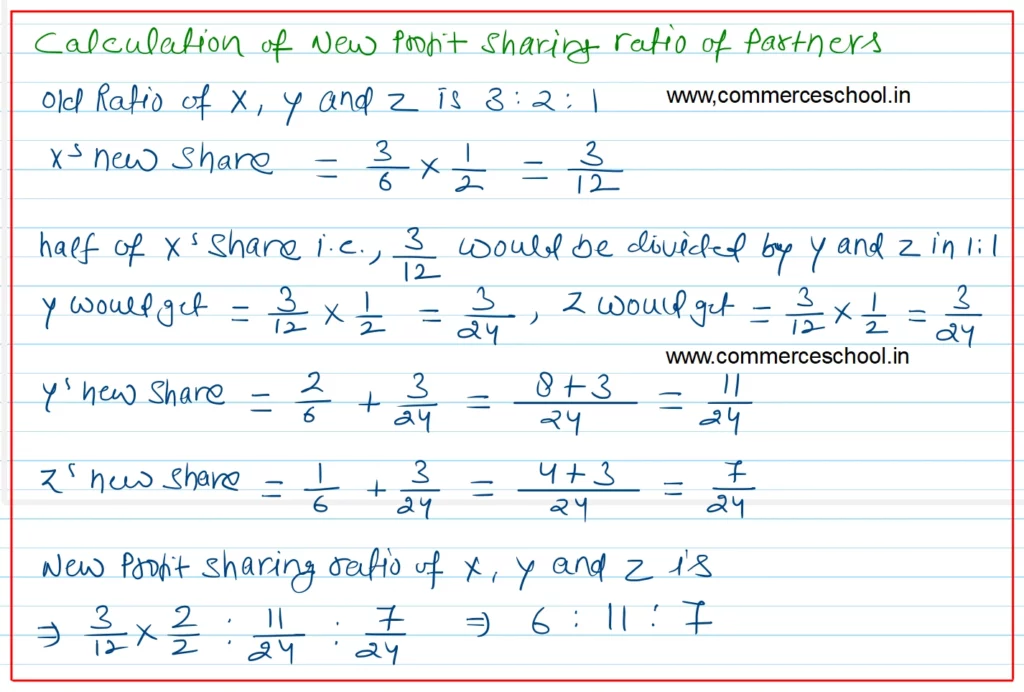 Calculation of New Profit sharing ratio of Partners
Old Ratio of X, Y and Z is 3 : 2 : 1
www,commerceschool.in
X's new share = 3/6 × 1/2 = 3/12
half of X's share i.e., 3/12 would be divided by Y and Z in 1:1
Y would get = 3/12 × 1/2 = 3/24, Z would get = 3/12 × 1/2 = 3/24
www.commerceschool.in
Y's new share = 2/6 + 3/24 = 8+3/24 = 11/24
Z's new share = 1/6 + 3/24 = 4+3/24 = 7/24
New Profit sharing ratio of X, Y and Z is
⇒ 3/12 × 2/2 : 11/24 : 7/24 ⇒ 6 : 11 : 7